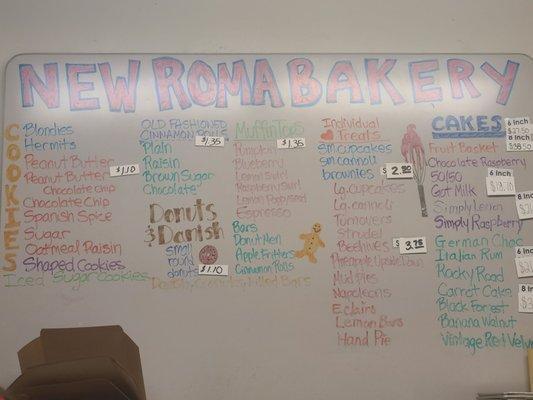 NEW ROMA BAKERY
COOKIES
Blondies
Hermits
Peanut Butter
Peanut Butter
Chocolate chip
Chocolate Chip
Spanish Spice
Sugar
Oatmeal Raisin
Shaped Cookies
Iced Sugar Cookies
$1.10
OLD FASHIONED
CINNAMON ROLLS
$1.35
Plain
Raisin
Brown Sugar
Chocolate
Donuts
& Danish
Small
round
donuts
$1.10
Double Crumbs, Filled Bars
Muffin Tops
$1.35
Pumpkin
Blueberry
Lemon Swirl
Raspberry Swirl
Lemon Poppyseed
Espresso
Bars
Donut Men
Apple Fritters
Cinnamon Rolls
Individual
Treats
Sm. cupcakes
Sm cannoli
brownies
La. cupcakes
La. cannoli
Turnovers
Strudel
Beehives
Pineapple Upside Down
Mud pies
Napoleons
Eclairs
Lemon Bars
Hand Pie
CAKES
6 inch
8 inch
Fruit Basket
Chocolate Raspberry
50/50
Oat Milk
6 inch
Simply Lemon
8 in
Simply Raspberry
German Choc
Italian Rum
6 inch
Rocky Road
Carrot Cake
8 in
Black Forest
Banana Walnut
Vintage Red Velv